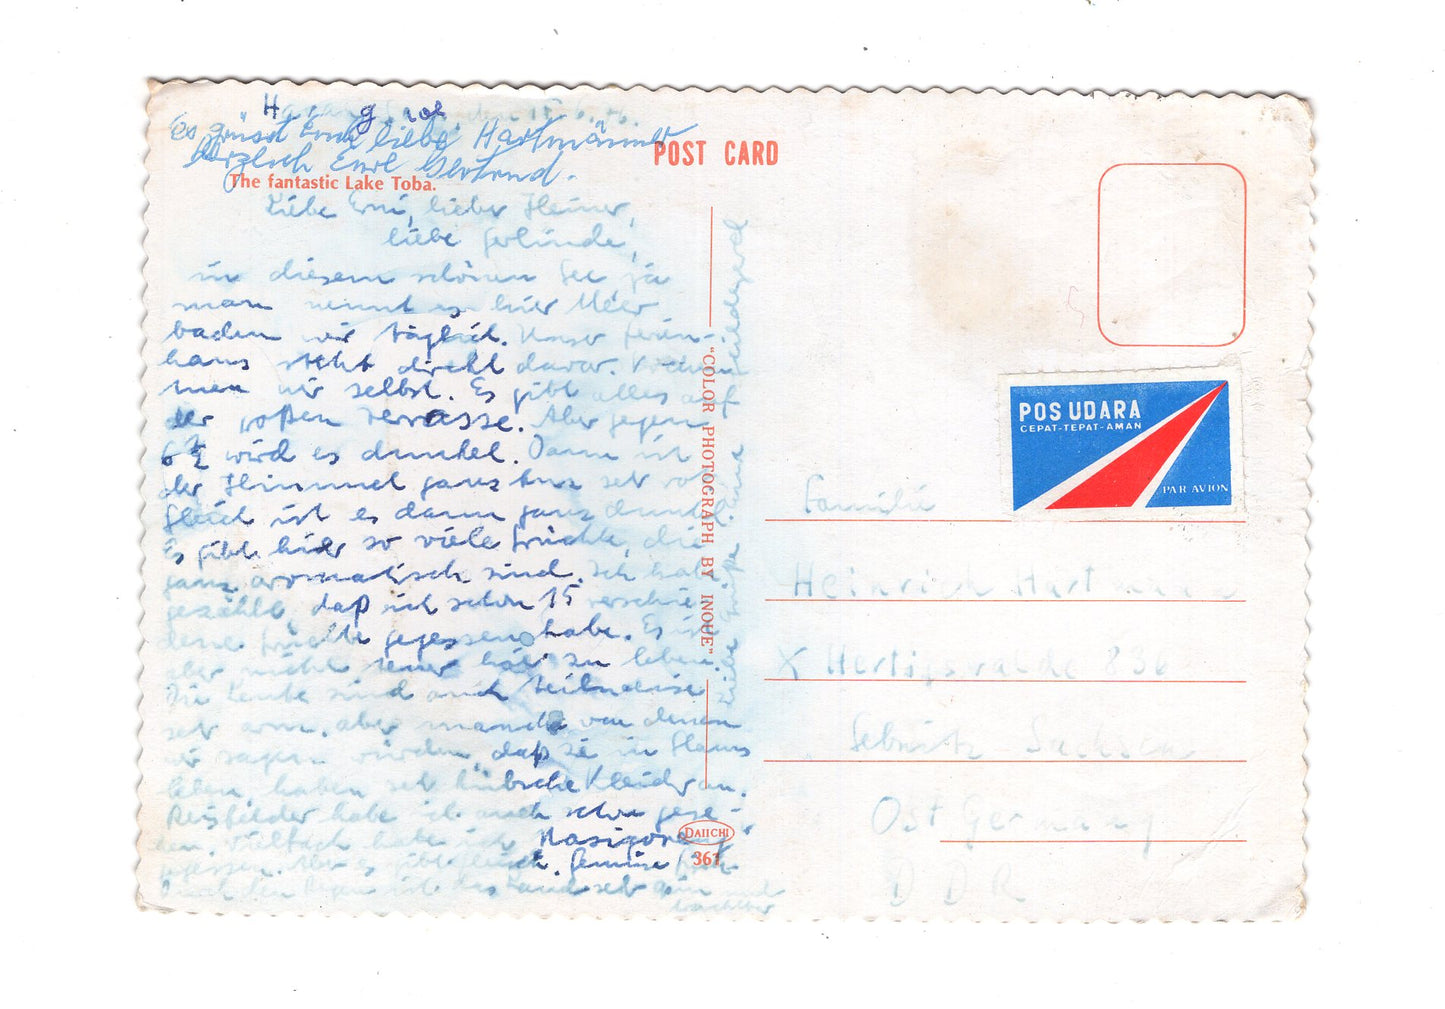 Harang
es grüsst Euch liebe Hartmänner
herzlich Euer Gertrud.
POST CARD
The fantastic Lake Toba.
Liebe Erni, lieber Heiner,
liebe Gerlinde,
in diesem schönen See ja
man nennt es hier Meer
baden wir täglich. Unser Ferien-
haus steht direkt davor. Kochen
wir selbst. Es gibt alles auf
der großen Terrasse. Aber gegen
6 ½ wird es dunkel. Dann ist
der Himmel ganz kurz seht rot
Gleich ist es dann ganz dunkel.
Es gibt hier so viele Früchte, die
ganz aromatisch sind. Ich habe
gezählt, daß ich schon 15 verschie-
dene Früchte gegessen habe. Es ist
aber nicht teuer hier zu leben.
Die Leute sind auch teilweise
seht arm, aber manche von denen
wir sagen würden, daß sie in Slums
leben, haben seht hübsche Kleider an.
Reisfelder habe ich auch schon gese-
hen. Vielfach habe ich Nasigoreng
gegessen. Aber es gibt Fleisch, Gemüse
den Regen ist das Land seht grün und
fruchtbar
Liebe Grüße
"COLOR PHOTOGRAPH BY INOUE"
DAIICHI
361
POS UDARA
CEPAT-TEPAT-AMAN
PAR AVION
Familie
Heinrich Hartmann
X Hertigswalde 836
Sebnitz Sachsen
Ost Germany
DDR